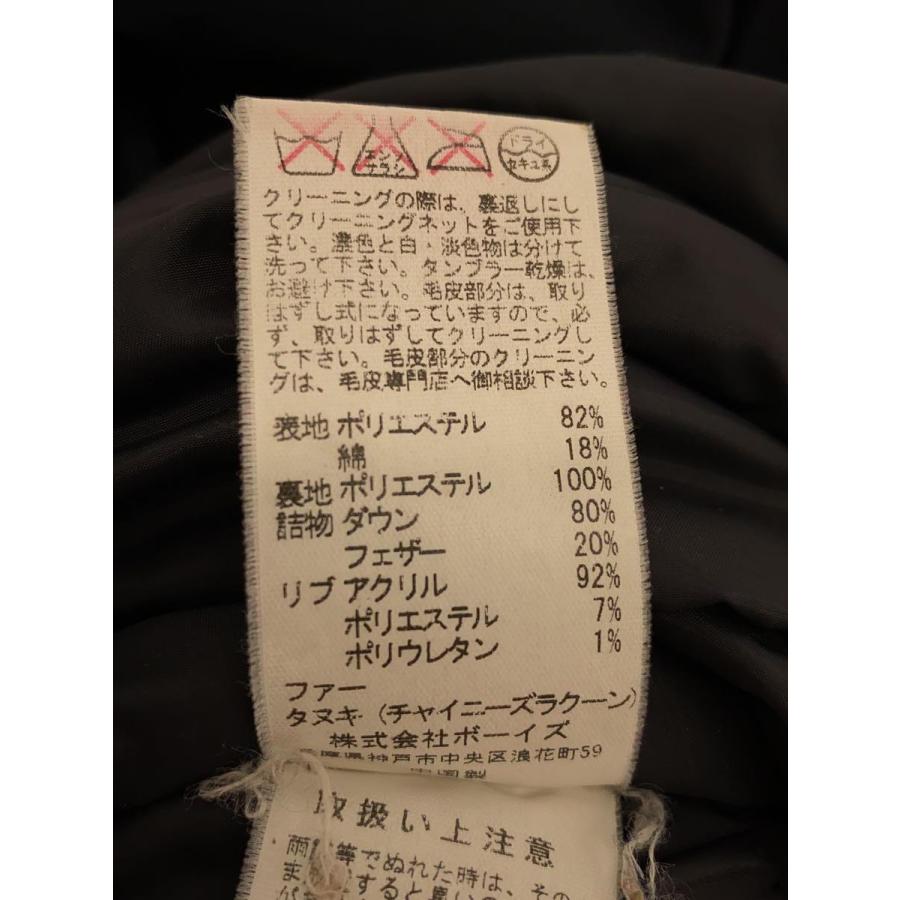 エンソ
サラシ
ドライ
セキユ系
クリーニングの際は、裏返しにし
てクリーニングネットをご使用下
さい。濃色と白・淡色物は分けて
洗って下さい。タンブラー乾燥は、
お避け下さい。毛皮部分は、取り
はずし式になっていますので、必
ず、取りはずしてクリーニングし
て下さい。毛皮部分のクリーニン
グは、毛皮専門店へ御相談下さい。
表地 ポリエステル 82%
綿 18%
裏地 ポリエステル 100%
詰物 ダウン 80%
フェザー 20%
リブ アクリル 92%
ポリエステル 7%
ポリウレタン 1%
ファー
タヌキ (チャイニーズラクーン)
株式会社ボーイズ
兵庫県神戸市中央区浪花町59
中国製
取扱い上注意
雨等でぬれた時は、その
ま
すると